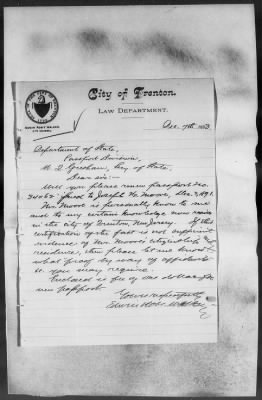 City of Trenton.
LAW DEPARTMENT.
Dec. 7th 1893
Department of State,
Passport Division,
W. Q. Gresham, Sec'y of State,
Dear Sir:—
Will you please renew passport No.
issued to Joseph H. Moore, Dec. 7, 1891.
Mr. Moore is personally known to me
and to my certain knowledge now resides
in the city of Trenton, New Jersey. If this
certification of the fact is not sufficient
evidence of Mr. Moore's citizenship and
residence, then please let me know
what proof by way of affidavits
you may require.
Enclosed is fee of one dollar for
new passport.
Yours respectfully
Edwin Robt. Walker